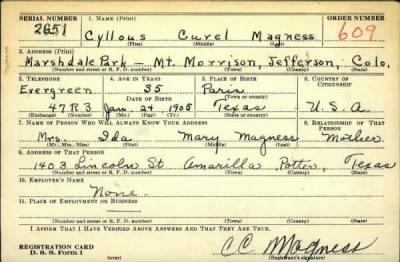 SERIAL NUMBER 1. NAME (Print) ORDER NUMBER
2651 Cyllous Curel Magness 609
(First) (Middle) (Last)
2. ADDRESS (Print)
Marshdale Park - Mt. Morrison, Jefferson, Colo,
(Number and street or R. F. D. number) (Town) (County) (State)
3. TELEPHONE 4. AGE IN YEARS 5. PLACE OF BIRTH 6. COUNTRY OF CITIZENSHIP
Evergreen 35 Paris
DATE OF BIRTH (Town or county)
47R3 Jan. 24 1905 Texas U.S.A
(Exchange) (Number) (Mo.) (Day) (Yr.) (State or country)
7. NAME OF PERSON WHO WILL ALWAYS KNOW YOUR ADDRESS 8. RELATIONSHIP OF THAT PERSON
Mrs. Ida Mary Magness Mother
(Mr., Mrs., Miss) (First) (Middle) (Last)
9. ADDRESS OF THAT PERSON
1403 Lincoln St Amarilla Potter, Texas
(Number and street or R. F. D. number) (Town) (County) (State)
10. EMPLOYER'S NAME
None
11. PLACE OF EMPLOYMENT OR BUSINESS
(Number and street or R. F. D. number) (Town) (County) (State)
I AFFIRM THAT I HAVE VERIFIED ABOVE ANSWERS AND THAT THEY ARE TRUE.
REGISTRATION CARD
D. S. S. Form 1 (over) CC Magness
(Registrant's signature)